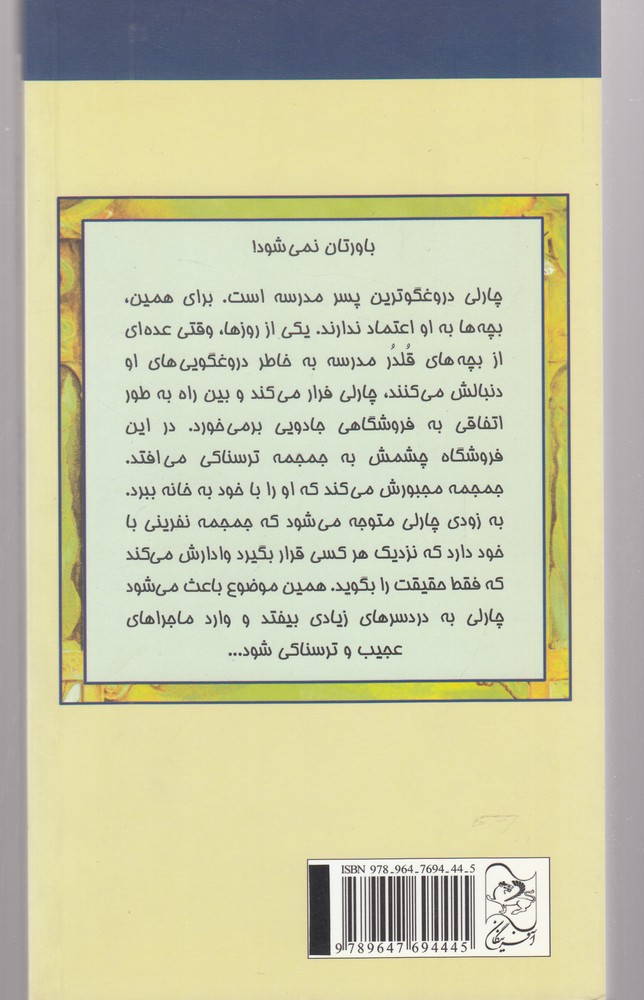 باورتان نمی‌شود!
چارلی دروغگوترین پسر مدرسه است. برای همین،
بچه‌ها به او اعتماد ندارند. یکی از روزها، وقتی عده‌ای
از بچه‌های قُلدُر مدرسه به خاطر دروغگویی‌های او
دنبالش می‌کنند، چارلی فرار می‌کند و بین راه به طور
اتفاقی به فروشگاهی جادویی برمی‌خورد. در این
فروشگاه چشمش به جمجمه ترسناکی می‌افتد.
جمجمه مجبورش می‌کند که او را با خود به خانه ببرد.
به زودی چارلی متوجه می‌شود که جمجمه نفرینی با
خود دارد که نزدیک هر کسی قرار بگیرد وادارش می‌کند
که فقط حقیقت را بگوید. همین موضوع باعث می‌شود
چارلی به دردسرهای زیادی بیفتد و وارد ماجراهای
عجیب و ترسناکی شود...
ISBN 978-964-7694-44-5
9 789647 694445